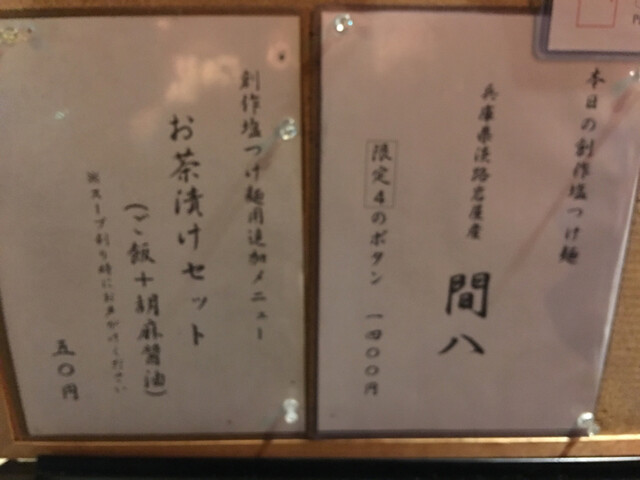 本日の創作塩つけ麺
兵庫県淡路岩屋産
間八
限定4のボタン 一四〇〇円
創作塩つけ麺用追加メニュー
お茶漬けセット
(ご飯+胡麻醤油)
※スープ割り時にお声がけください
五〇円